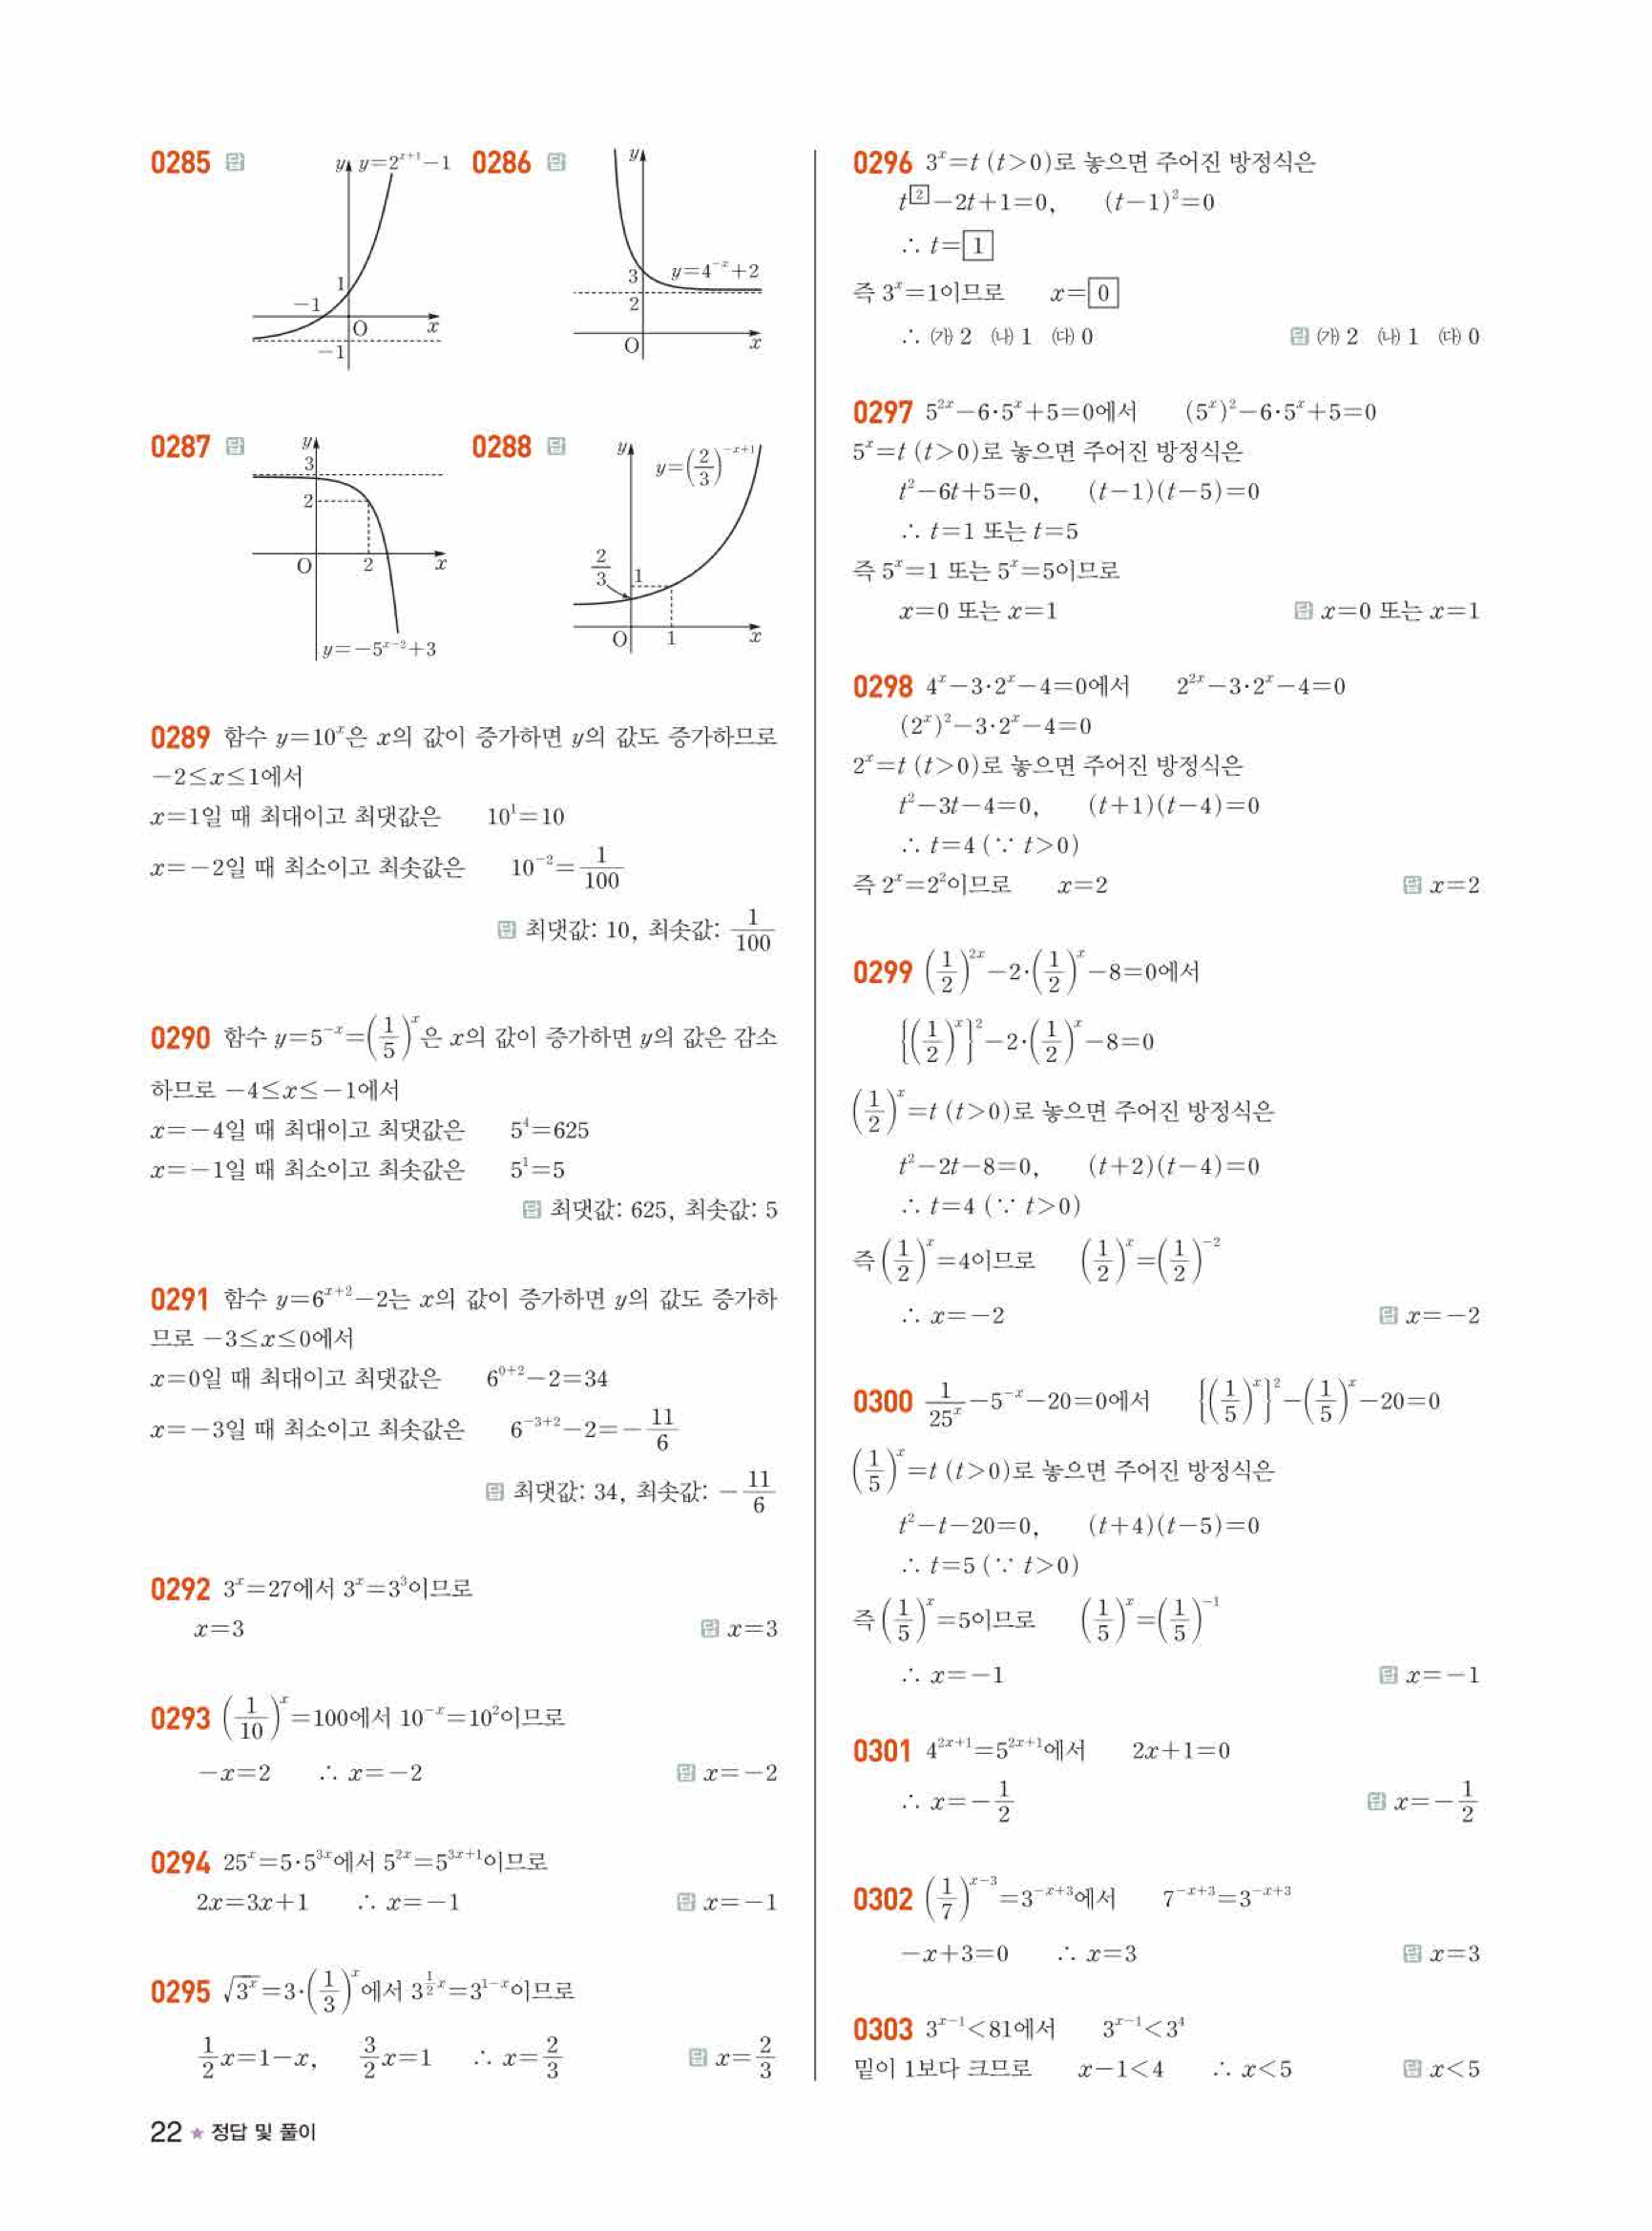 0285 답
y y=2^{x+1}-1
1
-1
O x
-1
0286 답
y
3 y=4^{-x}+2
2
O x
0287 답
y
3
2
O 2 x
y=-5^{x-2}+3
0288 답
y y=(2/3)^{-x+1}
2/3 1
O 1 x
0289 함수 y=10^x은 x의 값이 증가하면 y의 값도 증가하므로
-2≤x≤1에서
x=1일 때 최대이고 최댓값은 10^1=10
x=-2일 때 최소이고 최솟값은 10^{-2}=1/100
답 최댓값: 10, 최솟값: 1/100
0290 함수 y=5^{-x}=(1/5)^x은 x의 값이 증가하면 y의 값은 감소
하므로 -4≤x≤-1에서
x=-4일 때 최대이고 최댓값은 5^4=625
x=-1일 때 최소이고 최솟값은 5^1=5
답 최댓값: 625, 최솟값: 5
0291 함수 y=6^{x+2}-2는 x의 값이 증가하면 y의 값도 증가하
므로 -3≤x≤0에서
x=0일 때 최대이고 최댓값은 6^{0+2}-2=34
x=-3일 때 최소이고 최솟값은 6^{-3+2}-2=-11/6
답 최댓값: 34, 최솟값: -11/6
0292 3^x=27에서 3^x=3^3이므로
x=3 답 x=3
0293 (1/10)^x=100에서 10^{-x}=10^2이므로
-x=2 ∴ x=-2 답 x=-2
0294 25^x=5·5^{3x}에서 5^{2x}=5^{3x+1}이므로
2x=3x+1 ∴ x=-1 답 x=-1
0295 √3^x=3·(1/3)^x에서 3^{1/2x}=3^{1-x}이므로
1/2x=1-x, 3/2x=1 ∴ x=2/3 답 x=2/3
22 ★ 정답 및 풀이
0296 3^x=t (t>0)로 놓으면 주어진 방정식은
t^{2}-2t+1=0, (t-1)^2=0
∴ t=1
즉 3^x=1이므로 x=0
∴ ㈎ 2 ㈏ 1 ㈐ 0 답 ㈎ 2 ㈏ 1 ㈐ 0
0297 5^{2x}-6·5^x+5=0에서 (5^x)^2-6·5^x+5=0
5^x=t (t>0)로 놓으면 주어진 방정식은
t^2-6t+5=0, (t-1)(t-5)=0
∴ t=1 또는 t=5
즉 5^x=1 또는 5^x=5이므로
x=0 또는 x=1 답 x=0 또는 x=1
0298 4^x-3·2^x-4=0에서 2^{2x}-3·2^x-4=0
(2^x)^2-3·2^x-4=0
2^x=t (t>0)로 놓으면 주어진 방정식은
t^2-3t-4=0, (t+1)(t-4)=0
∴ t=4 (∵ t>0)
즉 2^x=2^2이므로 x=2 답 x=2
0299 (1/2)^{2x}-2·(1/2)^x-8=0에서
{(1/2)^x}^2-2·(1/2)^x-8=0
(1/2)^x=t (t>0)로 놓으면 주어진 방정식은
t^2-2t-8=0, (t+2)(t-4)=0
∴ t=4 (∵ t>0)
즉 (1/2)^x=4이므로 (1/2)^x=(1/2)^{-2}
∴ x=-2 답 x=-2
0300 1/25^x-5^{-x}-20=0에서 {(1/5)^x}^2-(1/5)^x-20=0
(1/5)^x=t (t>0)로 놓으면 주어진 방정식은
t^2-t-20=0, (t+4)(t-5)=0
∴ t=5 (∵ t>0)
즉 (1/5)^x=5이므로 (1/5)^x=(1/5)^{-1}
∴ x=-1 답 x=-1
0301 4^{2x+1}=5^{2x+1}에서 2x+1=0
∴ x=-1/2 답 x=-1/2
0302 (1/7)^{x-3}=3^{-x+3}에서 7^{-x+3}=3^{-x+3}
-x+3=0 ∴ x=3 답 x=3
0303 3^{x-1}<81에서 3^{x-1}<3^4
밑이 1보다 크므로 x-1<4 ∴ x<5 답 x<5